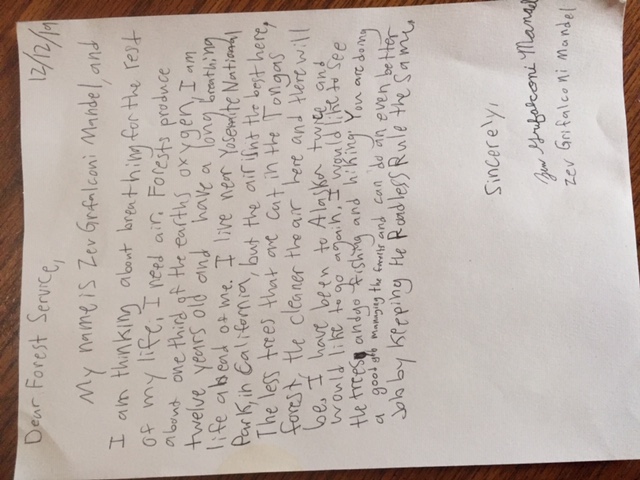 12/12/19
Dear Forest Service,
My name is Zev Grifalconi Mandel, and
I am thinking about breathing for the rest
of my life, I need air. Forests produce
about one third of the earths oxygen, I am
twelve years old and have a long breathing
life ahead of me. I live near Yosemite National
Park, in California, but the air isnt the best here,
The less trees that are cut in the Tongas
forest, the cleaner the air here and there will
be. I have been to Alaska twice and
would like to go again, I would like to see
the trees and go fishing and hiking. You are doing
a good job managing the forests and can do an even better
Job by keeping the Roadless Rule the same.
Sincerely,
Zev Grifalconi Mandel
Zev Grifalconi Mandel